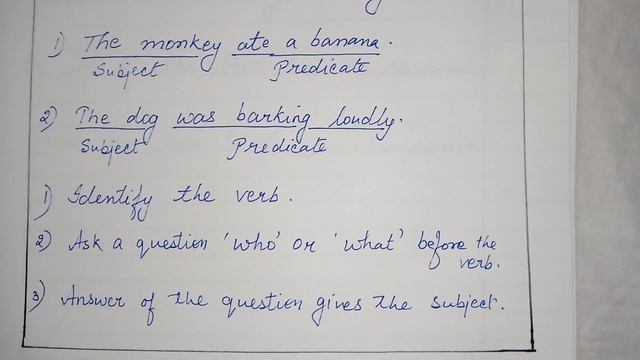 1) The monkey ate a banana.
Subject Predicate
2) The dog was barking loudly.
Subject Predicate
1) Identify the verb.
2) Ask a question 'who' or 'what' before the
verb.
3) Answer of the question gives the subject.